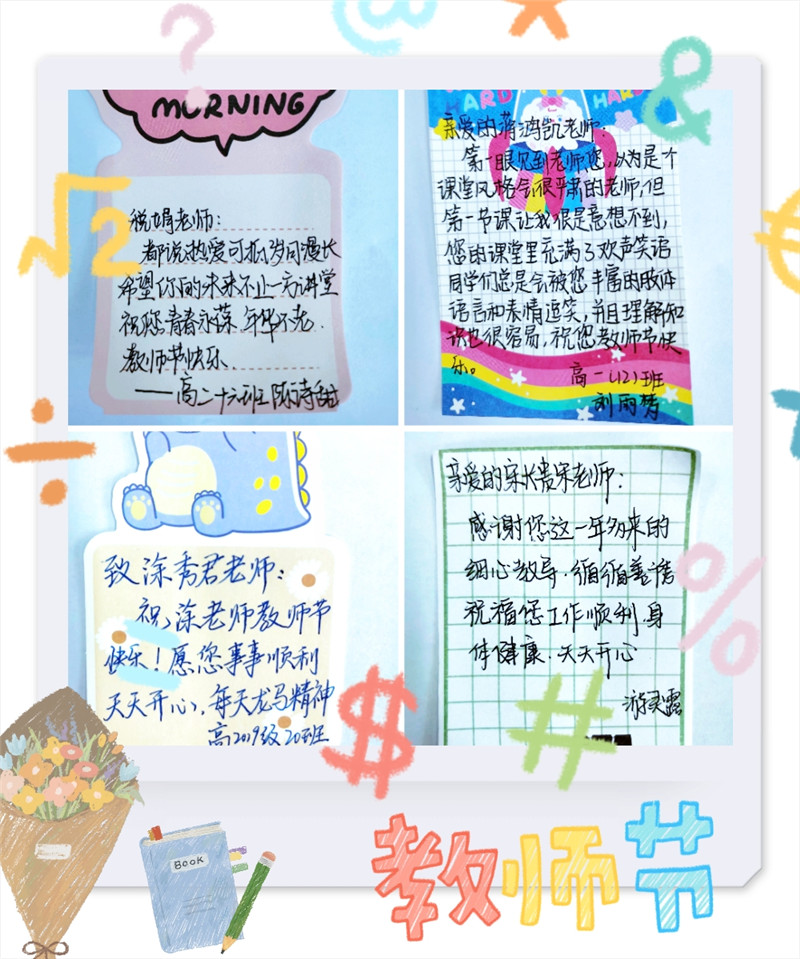 ?
@
*
&
√2
€
÷
%
$
#
MORNING
税娟老师:
都说热爱可抵岁月漫长
希望你的未来不止一方讲堂
祝您青春永葆 年华不老.
教师节快乐.
——高二十六班 陈诗甜
HARD HARD
亲爱的蒲鸿凯老师:
第一眼见到老师您,以为是个
课堂风格会很严肃的老师,但
第一节课让我很是意想不到,
您的课堂里充满了欢声笑语
同学们总是会被您丰富的肢体
语言和表情逗笑,并且理解知
识也很容易,祝您教师节快
乐。
高一(12)班
刘雨梦
致涂秀君老师:
祝涂老师教师节
快乐!愿您事事顺利
天天开心,每天龙马精神
高2019级20班
亲爱的宋长贵老师:
感谢您这一年多来的
细心教导.循循善诱
祝福您工作顺利.身
体健康.天天开心
游灵露
BOOK
教师节